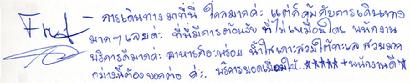 - การเดินทางมาที่นี่ ไกลมากค่ะ แต่ก็คุ้มกับการเดินทาง
มากๆ เลยค่ะ ที่นี่มีการต้อนรับ ที่ไม่เหมือนใคร พนักงาน
บริการดีมากค่ะ อาหารก็อร่อย น้ำใสเกาะสวยได้ทะเล สวยมาก
กว่านี้ต้องบอกต่อ ค่ะ. บริการยอดเยี่ยมให้ ***** + พนักงานดี